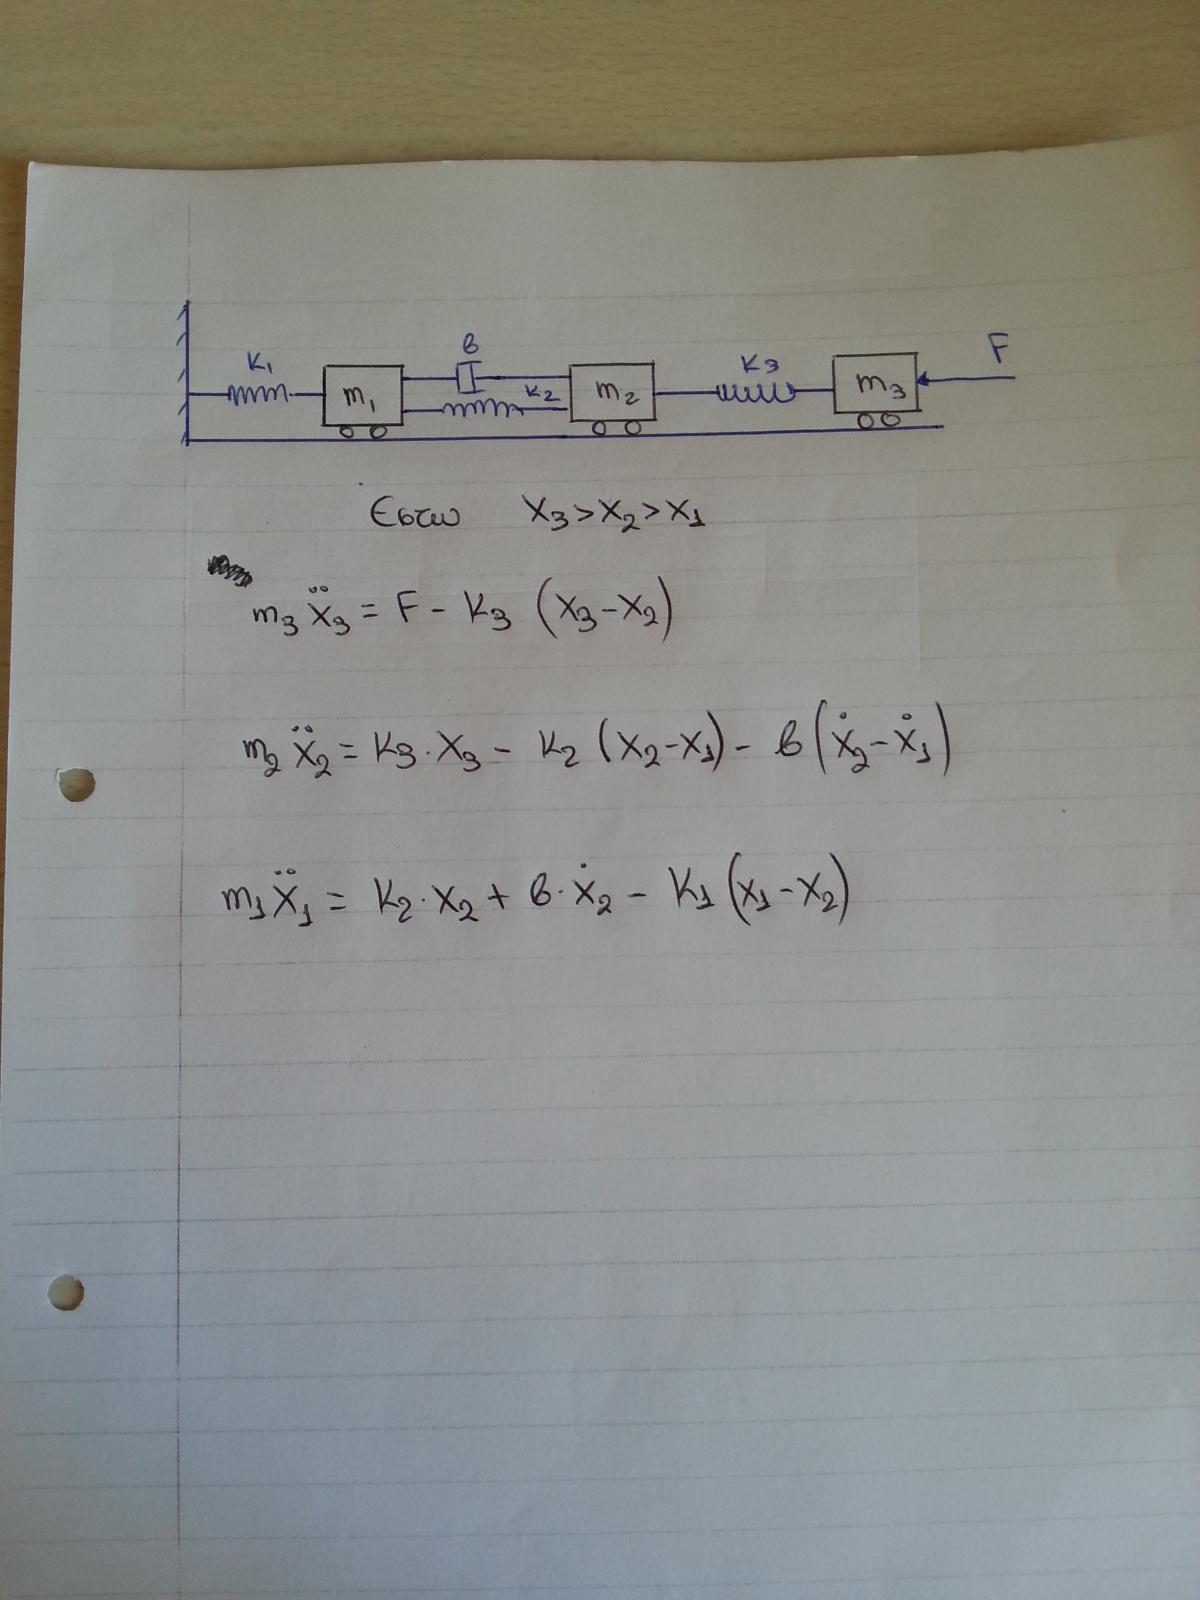 K₁ B K₂ K₃ F
m₁ m₂ m₃
Εστω X₃ > X₂ > X₁
m₃ Ẍ₃ = F - K₃ (X₃ - X₂)
m₂ Ẍ₂ = K₃ · X₃ - K₂ (X₂ - X₁) - B (Ẋ₂ - Ẋ₁)
m₁ Ẍ₁ = K₂ · X₂ + B · Ẋ₂ - K₁ (X₁ - X₂)